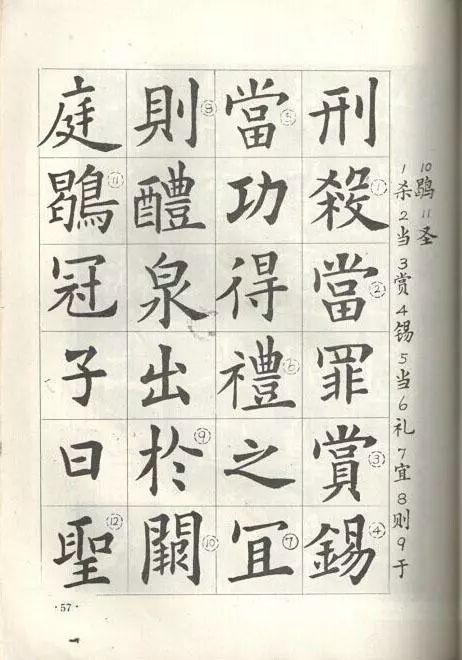 10鹖 11圣
1杀2当3赏4锡5当6礼7宜8则9于
刑殺①當②罪賞③錫④
當⑤功得禮⑥之冝⑦
則⑧醴泉出於⑨闕⑩
庭鶡⑪冠子曰聖⑫
·57·